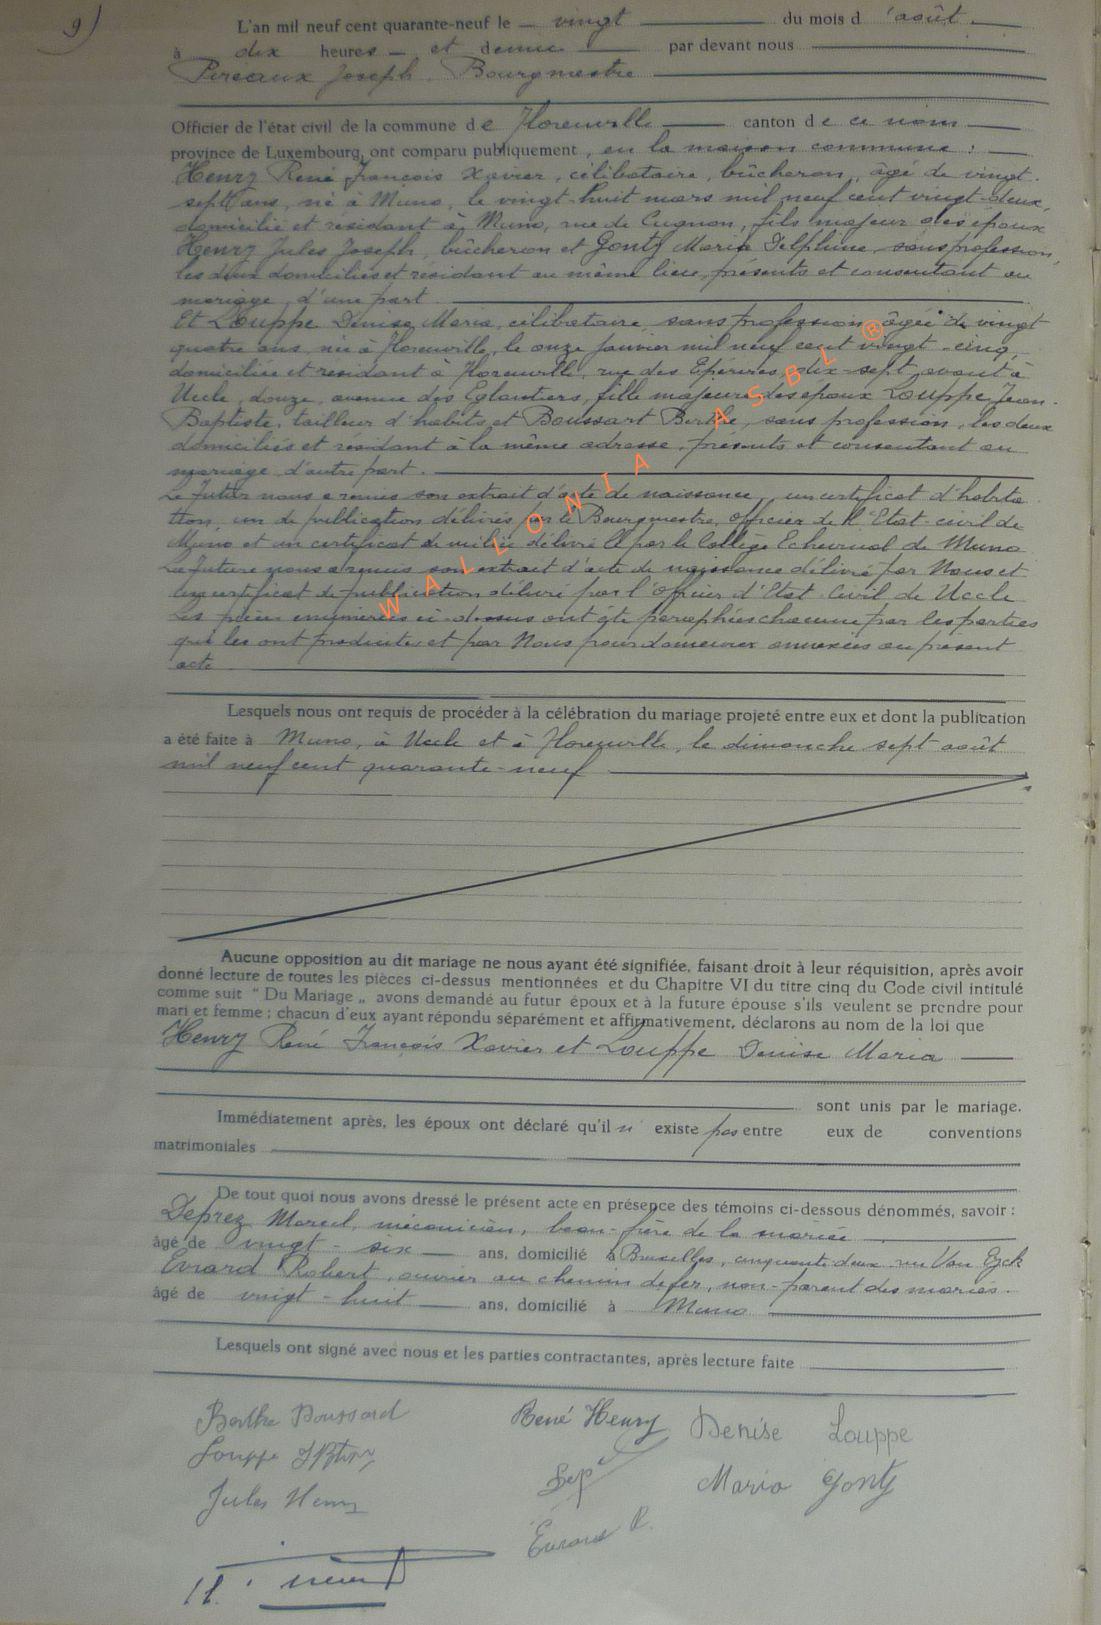 9)
L'an mil neuf cent quarante-neuf le vingt du mois d'août
à dix heures et demie par devant nous
Pireaux Joseph. Bourgmestre
Officier de l'état civil de la commune de Florenville canton de ce nom
province de Luxembourg, ont comparu publiquement, en la maison commune :
Henry René François Xavier, célibataire, bûcheron, âgé de vingt-
sept ans, né à Muno, le vingt-huit mars mil neuf cent vingt-deux,
domicilié et résidant à Muno, rue de Cugnon, fils majeur des époux
Henry Jules Joseph, bûcheron et Gonty Maria Delphine, sans profession,
les deux domiciliés et résidant au même lieu, présents et consentant au
mariage, d'une part.
Et Louppe Denise Maria, célibataire, sans profession, âgée de vingt
quatre ans, née à Florenville, le onze janvier mil neuf cent vingt-cinq,
domiciliée et résidant à Florenville, rue des Epérires, dix-sept, avant à
Uccle, douze, avenue des Eglantiers, fille majeure des époux Louppe Jean-
Baptiste, tailleur d'habits et Boussart Berthe, sans profession, les deux
domiciliés et résidant à la même adresse, présents et consentant au
mariage d'autre part.
Le futur nous a remis son extrait d'acte de naissance, un certificat d'habita
tion, un de publication délivrés par le Bourgmestre, officier de l'Etat-civil de
Muno et un certificat de milice délivré par le Collège Echevinal de Muno
La future nous a remis son extrait d'acte de naissance délivré par Nous et
un certificat de publication délivré par l'Officier d'Etat-Civil de Uccle
Les pièces énumérées ci-dessus ont été paraphées chacune par les parties
qui les ont produites et par Nous pour demeurer annexées au présent
acte
WALLONIA ASBL ®
Lesquels nous ont requis de procéder à la célébration du mariage projeté entre eux et dont la publication
a été faite à Muno, à Uccle et à Florenville, le dimanche sept août
mil neuf cent quarante-neuf
Aucune opposition au dit mariage ne nous ayant été signifiée, faisant droit à leur réquisition, après avoir
donné lecture de toutes les pièces ci-dessus mentionnées et du Chapitre VI du titre cinq du Code civil intitulé
comme suit " Du Mariage „ avons demandé au futur époux et à la future épouse s'ils veulent se prendre pour
mari et femme ; chacun d'eux ayant répondu séparément et affirmativement, déclarons au nom de la loi que
Henry René François Xavier et Louppe Denise Maria
sont unis par le mariage.
Immédiatement après, les époux ont déclaré qu'il n'existe pas entre eux de conventions
matrimoniales
De tout quoi nous avons dressé le présent acte en présence des témoins ci-dessous dénommés, savoir :
Deprez Marcel, mécanicien, beau-frère de la mariée
âgé de vingt-six ans, domicilié à Bruxelles, cinquante deux rue Van Eyck
Evrard Robert, ouvrier au chemin de fer, non-parent des mariés.
âgé de vingt-huit ans, domicilié à Muno
Lesquels ont signé avec nous et les parties contractantes, après lecture faite
Berthe Boussard René Henry Denise Louppe
Louppe JBte
Maria Gonty
Jules Henry
Evrard R.